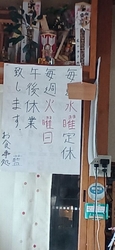 毎週水曜定休
毎週火曜日
午後休業
致します。
お食事処